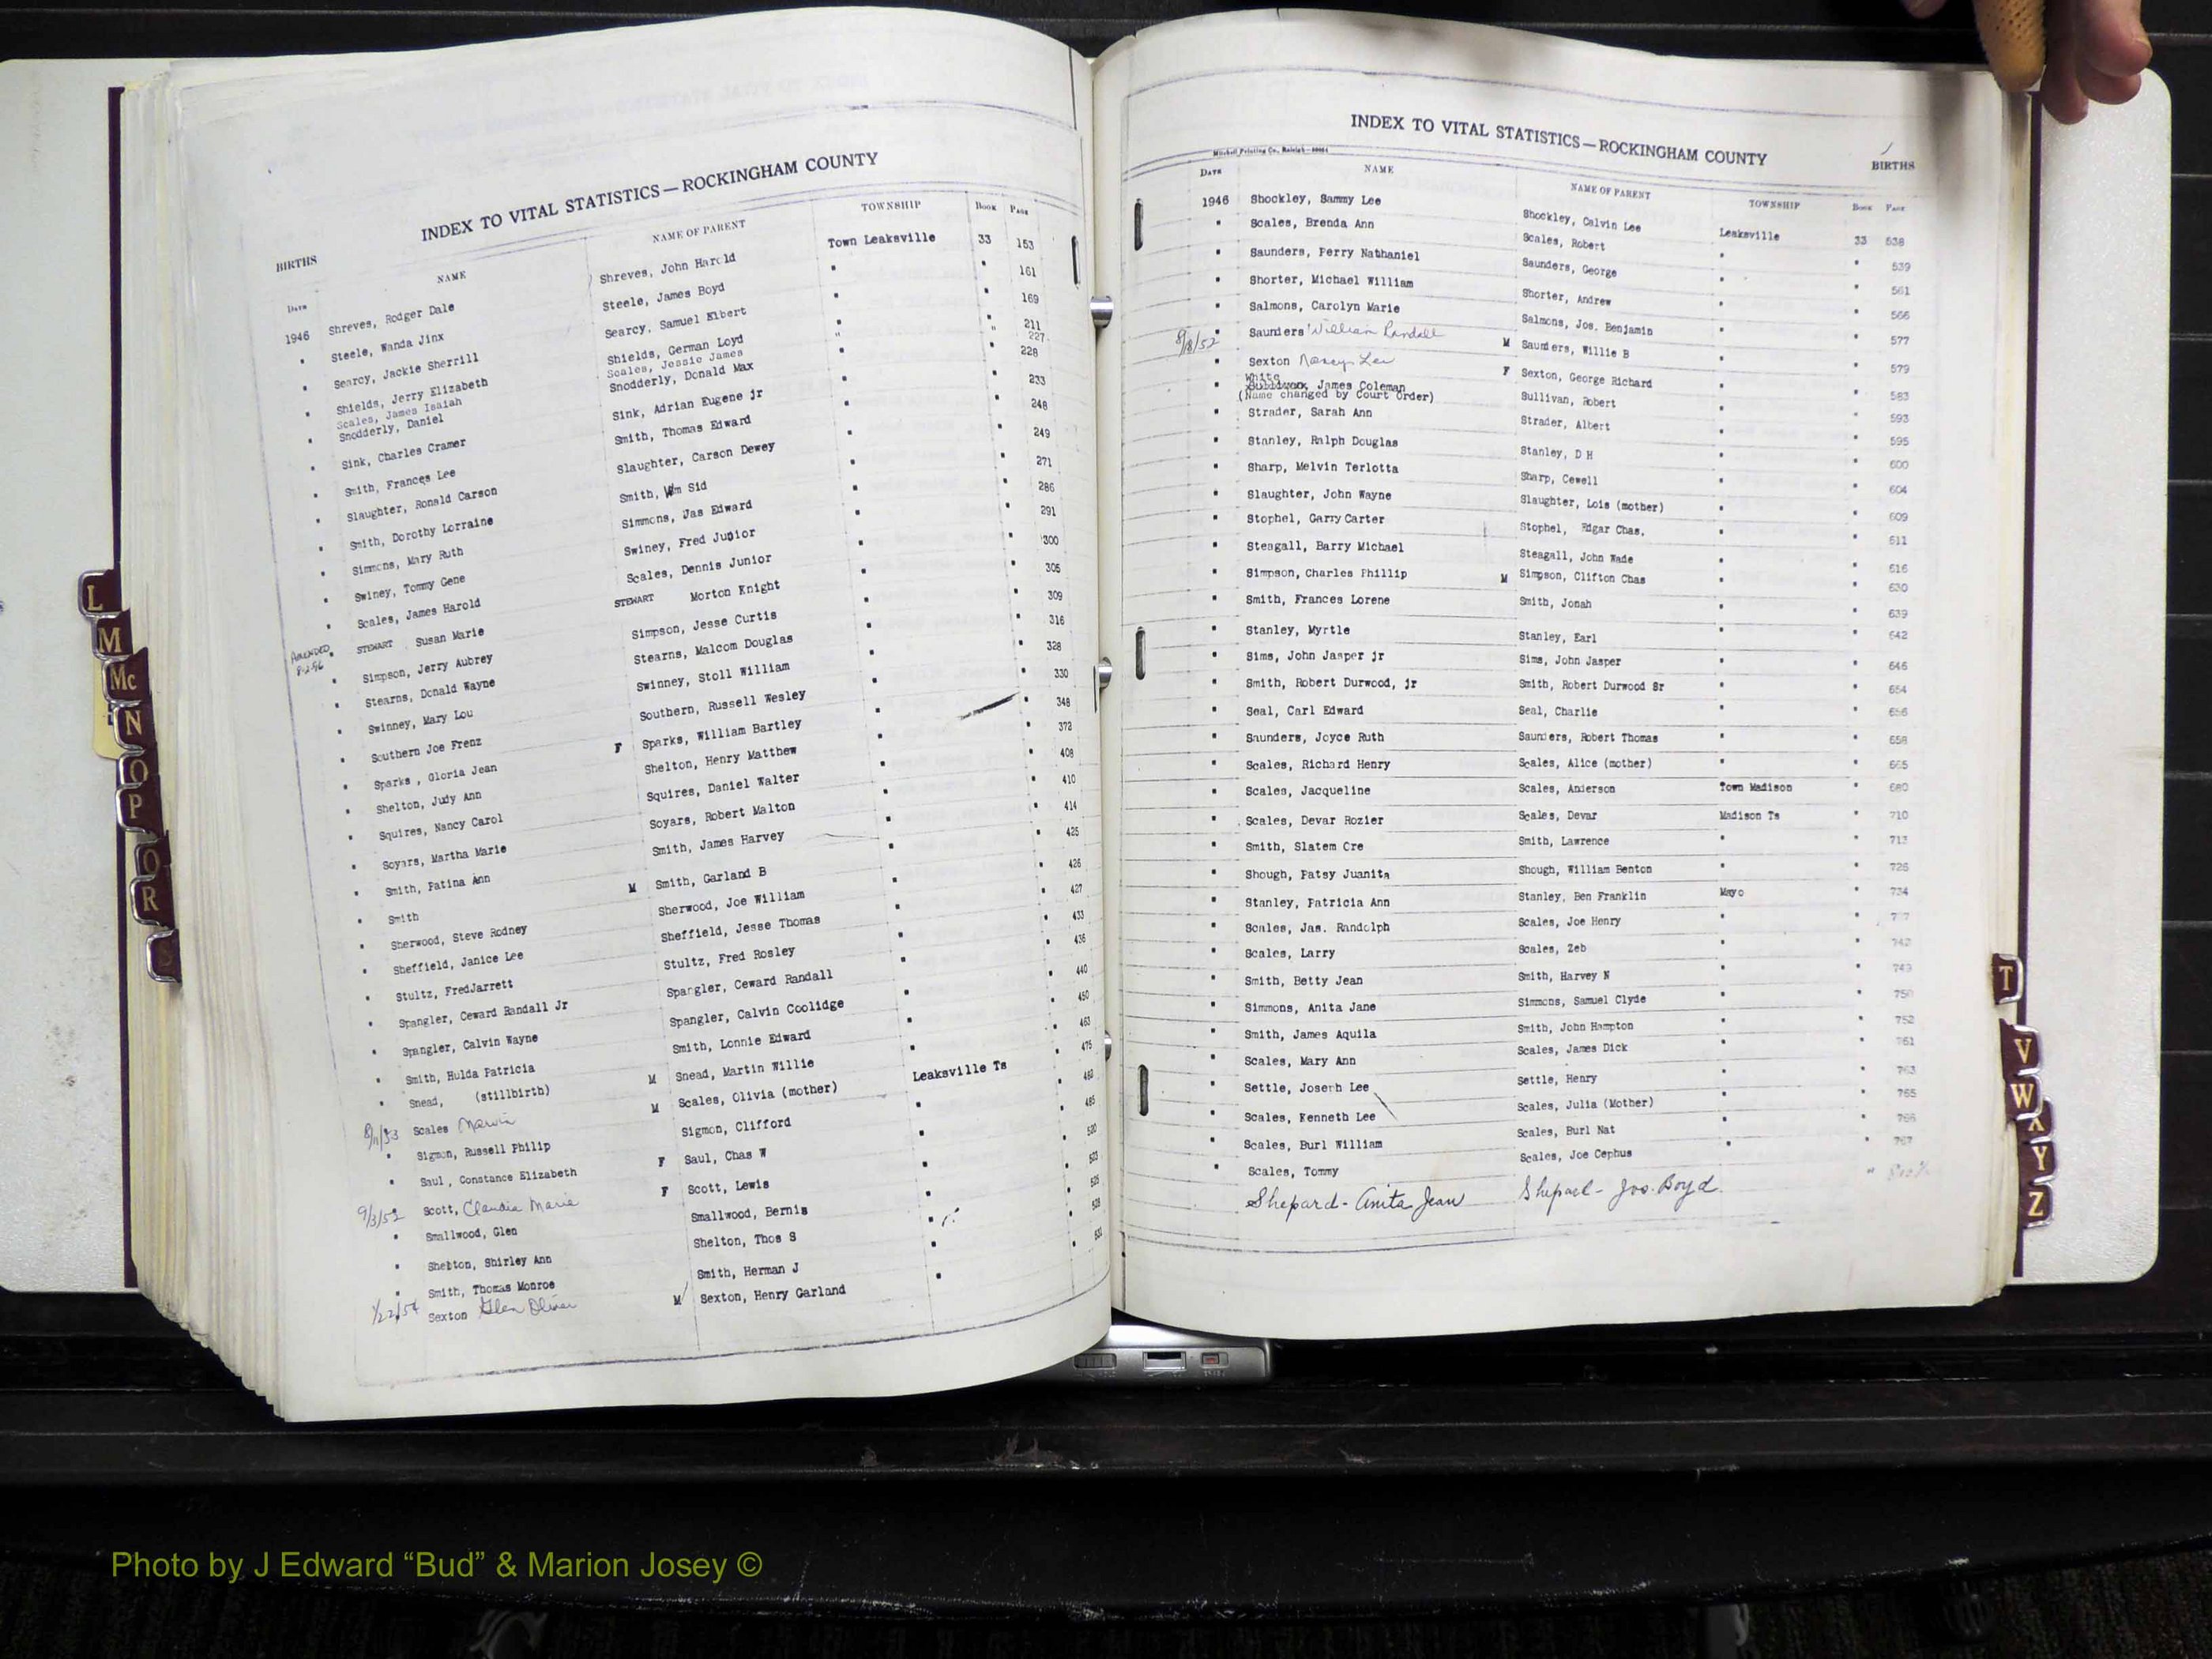 INDEX TO VITAL STATISTICS—ROCKINGHAM COUNTY
BIRTHS
DATE NAME NAME OF PARENT TOWNSHIP BOOK PAGE
1946 Shreves, Rodger Dale Shreves, John Harold Town Leaksville 33 153
" Steele, Wanda Jinx Steele, James Boyd " " 161
" Searcy, Jackie Sherrill Searcy, Samuel Elbert " " 169
" Shields, Jerry Elizabeth Shields, German Loyd " " 211
Scales, James Isaiah Scales, Jessie James " " 227
" Snodderly, Daniel Snodderly, Donald Max " 228
" Sink, Charles Cramer Sink, Adrian Eugene jr " " 233
" Smith, Frances Lee Smith, Thomas Edward " " 248
" Slaughter, Ronald Carson Slaughter, Carson Dewey " " 249
" Smith, Dorothy Lorraine Smith, Wm Sid " " 271
" Simmons, Mary Ruth Simmons, Jas Edward " " 286
" Swiney, Tommy Gene Swiney, Fred Junior " " 291
" Scales, James Harold Scales, Dennis Junior " " 300
AMENDED " STEWART Susan Marie STEWART Morton Knight " " 305
" Simpson, Jerry Aubrey Simpson, Jesse Curtis " " 309
" Stearns, Donald Wayne Stearns, Malcom Douglas " " 316
" Swinney, Mary Lou Swinney, Stoll William " " 328
" Southern Joe Frenz Southern, Russell Wesley " " 330
" Sparks , Gloria Jean F Sparks, William Bartley " " 348
" Shelton, Judy Ann Shelton, Henry Matthew " " 372
" Squires, Nancy Carol Squires, Daniel Walter " " 408
" Soyars, Martha Marie Soyars, Robert Malton " " 410
" Smith, Patina Ann Smith, James Harvey " " 414
" Smith M Smith, Garland B " " 425
" Sherwood, Steve Rodney Sherwood, Joe William " " 426
" Sheffield, Janice Lee Sheffield, Jesse Thomas " " 427
" Stultz, FredJarrett Stultz, Fred Rosley " " 433
" Spangler, Ceward Randall Jr Spangler, Ceward Randall " " 436
" Spangler, Calvin Wayne Spangler, Calvin Coolidge " " 440
" Smith, Hulda Patricia Smith, Lonnie Edward " " 450
" Snead, (stillbirth) M Snead, Martin Willie " " 463
8/11/53 Scales Marvin M Scales, Olivia (mother) Leaksville Ts " 475
" Sigmon, Russell Philip Sigmon, Clifford " " 483
" Saul , Constance Elizabeth F Saul, Chas W " " 485
9/3/52 Scott, Claudia Marie F Scott, Lewis " " 520
" Smallwood, Glen Smallwood, Bernis " " 523
" Shelton, Shirley Ann Shelton, Thos S " " 525
" Smith, Thomas Monroe Smith, Herman J " " 528
1/22/54 Sexton Glen Oliver M Sexton, Henry Garland " " 532
INDEX TO VITAL STATISTICS—ROCKINGHAM COUNTY
BIRTHS
Mitchell Printing Co., Raleigh
DATE NAME NAME OF PARENT TOWNSHIP BOOK PAGE
1946 Shockley, Sammy Lee Shockley, Calvin Lee Leaksville 33 538
" Scales, Brenda Ann Scales, Robert " " 539
" Saunders, Perry Nathaniel Saunders, George " " 561
" Shorter, Michael William Shorter, Andrew " " 566
" Salmons, Carolyn Marie Salmons, Jos. Benjamin " " 577
8/18/52 " Saunders William Randall M Saunders, Willie B " " 579
" Sexton Nancy Lee F Sexton, George Richard " " 583
White
" James Coleman Sullivan, Robert " " 593
(Name changed by Court Order)
" Strader, Sarah Ann Strader, Albert " " 595
" Stanley, Ralph Douglas Stanley, D H " " 600
" Sharp, Melvin Terlotta Sharp, Cewell " " 604
" Slaughter, John Wayne Slaughter, Lois (mother) " " 609
" Stophel, Garry Carter Stophel, Edgar Chas. " " 611
" Steagall, Barry Michael Steagall, John Wade " " 616
" Simpson, Charles Phillip M Simpson, Clifton Chas " " 630
" Smith, Frances Lorene Smith, Jonah " " 639
" Stanley, Myrtle Stanley, Earl " " 642
" Sims, John Jasper jr Sims, John Jasper " " 646
" Smith, Robert Durwood, jr Smith, Robert Durwood Sr " " 654
" Seal, Carl Edward Seal, Charlie " " 656
" Saunders, Joyce Ruth Saunders, Robert Thomas " " 658
" Scales, Richard Henry Scales, Alice (mother) " " 665
" Scales, Jacqueline Scales, Anderson Town Madison " 680
" Scales, Devar Rozier Scales, Devar Madison Ts " 710
" Smith, Slatem Cre Smith, Lawrence " " 713
" Shough, Patsy Juanita Shough, William Benton " " 726
" Stanley, Patricia Ann Stanley, Ben Franklin Mayo " 734
" Scales, Jas. Randolph Scales, Joe Henry " "
" Scales, Larry Scales, Zeb " " 742
" Smith, Betty Jean Smith, Harvey N " " 749
" Simmons, Anita Jane Simmons, Samuel Clyde " " 750
" Smith, James Aquila Smith, John Hampton " " 752
" Scales, Mary Ann Scales, James Dick " " 761
" Settle, Joseph Lee Settle, Henry " " 763
" Scales, Kenneth Lee Scales, Julia (Mother) " " 765
" Scales, Burl William Scales, Burl Nat " " 766
" Scales, Tommy Scales, Joe Cephus " " 767
Shepard - Anita Jean Shepard - Jos. Boyd
L
M
Mc
N
O
P
Q
R
S
T
V
W
X
Y
Z
Photo by J Edward “Bud” & Marion Josey ©